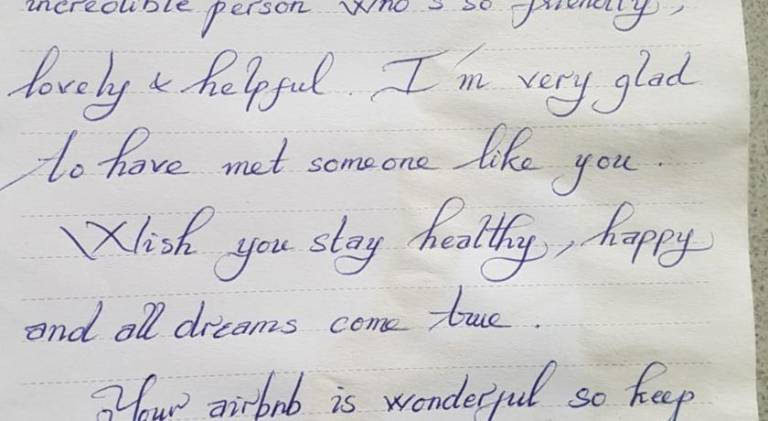 incredible person who's so friendly,
lovely & helpful. I'm very glad
to have met someone like you.
Wish you stay healthy, happy
and all dreams come true.
Your airbnb is wonderful so keep